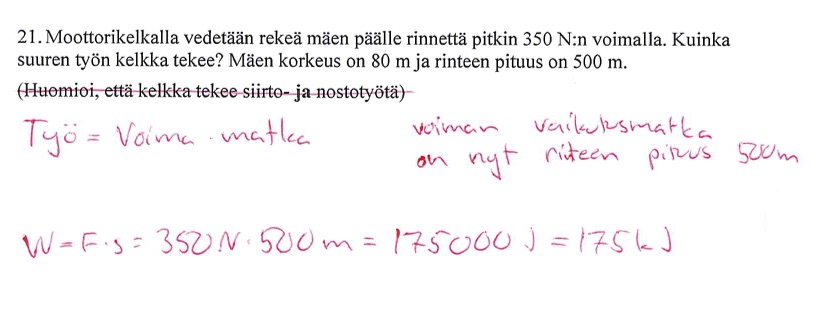 21. Moottorikelkalla vedetään rekeä mäen päälle rinnettä pitkin 350 N:n voimalla. Kuinka
suuren työn kelkka tekee? Mäen korkeus on 80 m ja rinteen pituus on 500 m.
(Huomioi, että kelkka tekee siirto- ja nostotyötä)
Työ = Voima · matka
voiman vaikutusmatka
on nyt riteen pituus 500m
W = F · s = 350N · 500m = 175000 J = 175kJ